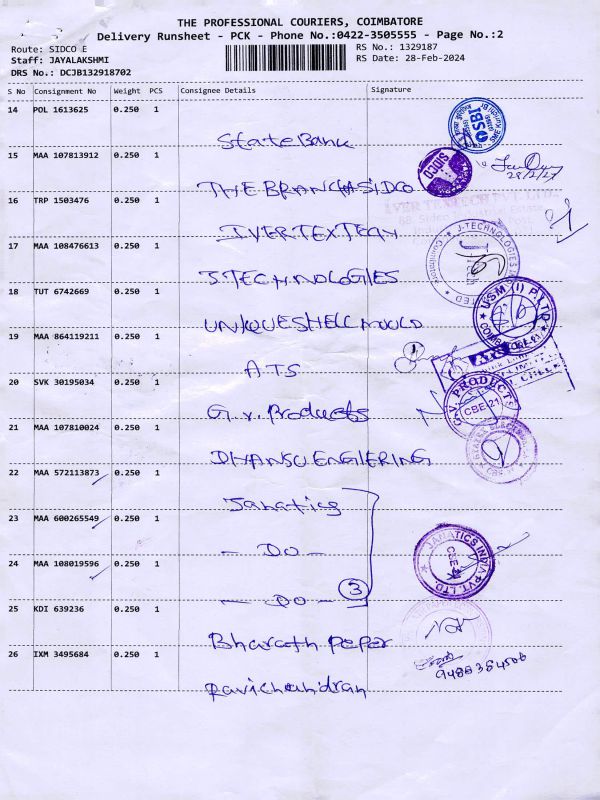 THE PROFESSIONAL COURIERS, COIMBATORE
Delivery Runsheet - PCK - Phone No.:0422-3505555 - Page No.:2
Route: SIDCO E
RS No.: 1329187
Staff: JAYALAKSHMI
RS Date: 28-Feb-2024
DRS No.: DCJB132918702
S No Consignment No Weight PCS Consignee Details Signature
14 POL 1613625 0.250 1 State Bank
SBI
15 MAA 107813912 0.250 1 THE BRANCH SIDCO
SIDCO
16 TRP 1503476 0.250 1 IVERTEXTECH
17 MAA 108476613 0.250 1 J.TECHNOLOGIES
J-TECHNOLOGIES
18 TUT 6742669 0.250 1 UNIQUESHELLMOULD
USM (I) P.LTD
19 MAA 864119211 0.250 1 ATS
1
ATS
20 SVK 30195034 0.250 1 G.V. Products
G.V. PRODUCTS
CBE-21
21 MAA 107810024 0.250 1 DIVANSUENGIERING
22 MAA 572113873 0.250 1 Janatics
23 MAA 600265549 0.250 1 - DO -
JANATICS INDIA PVT. LTD
24 MAA 108019596 0.250 1 - DO - 3
25 KDI 639236 0.250 1 Bharath peper
26 IXM 3495684 0.250 1 Ravichandran
9488384508